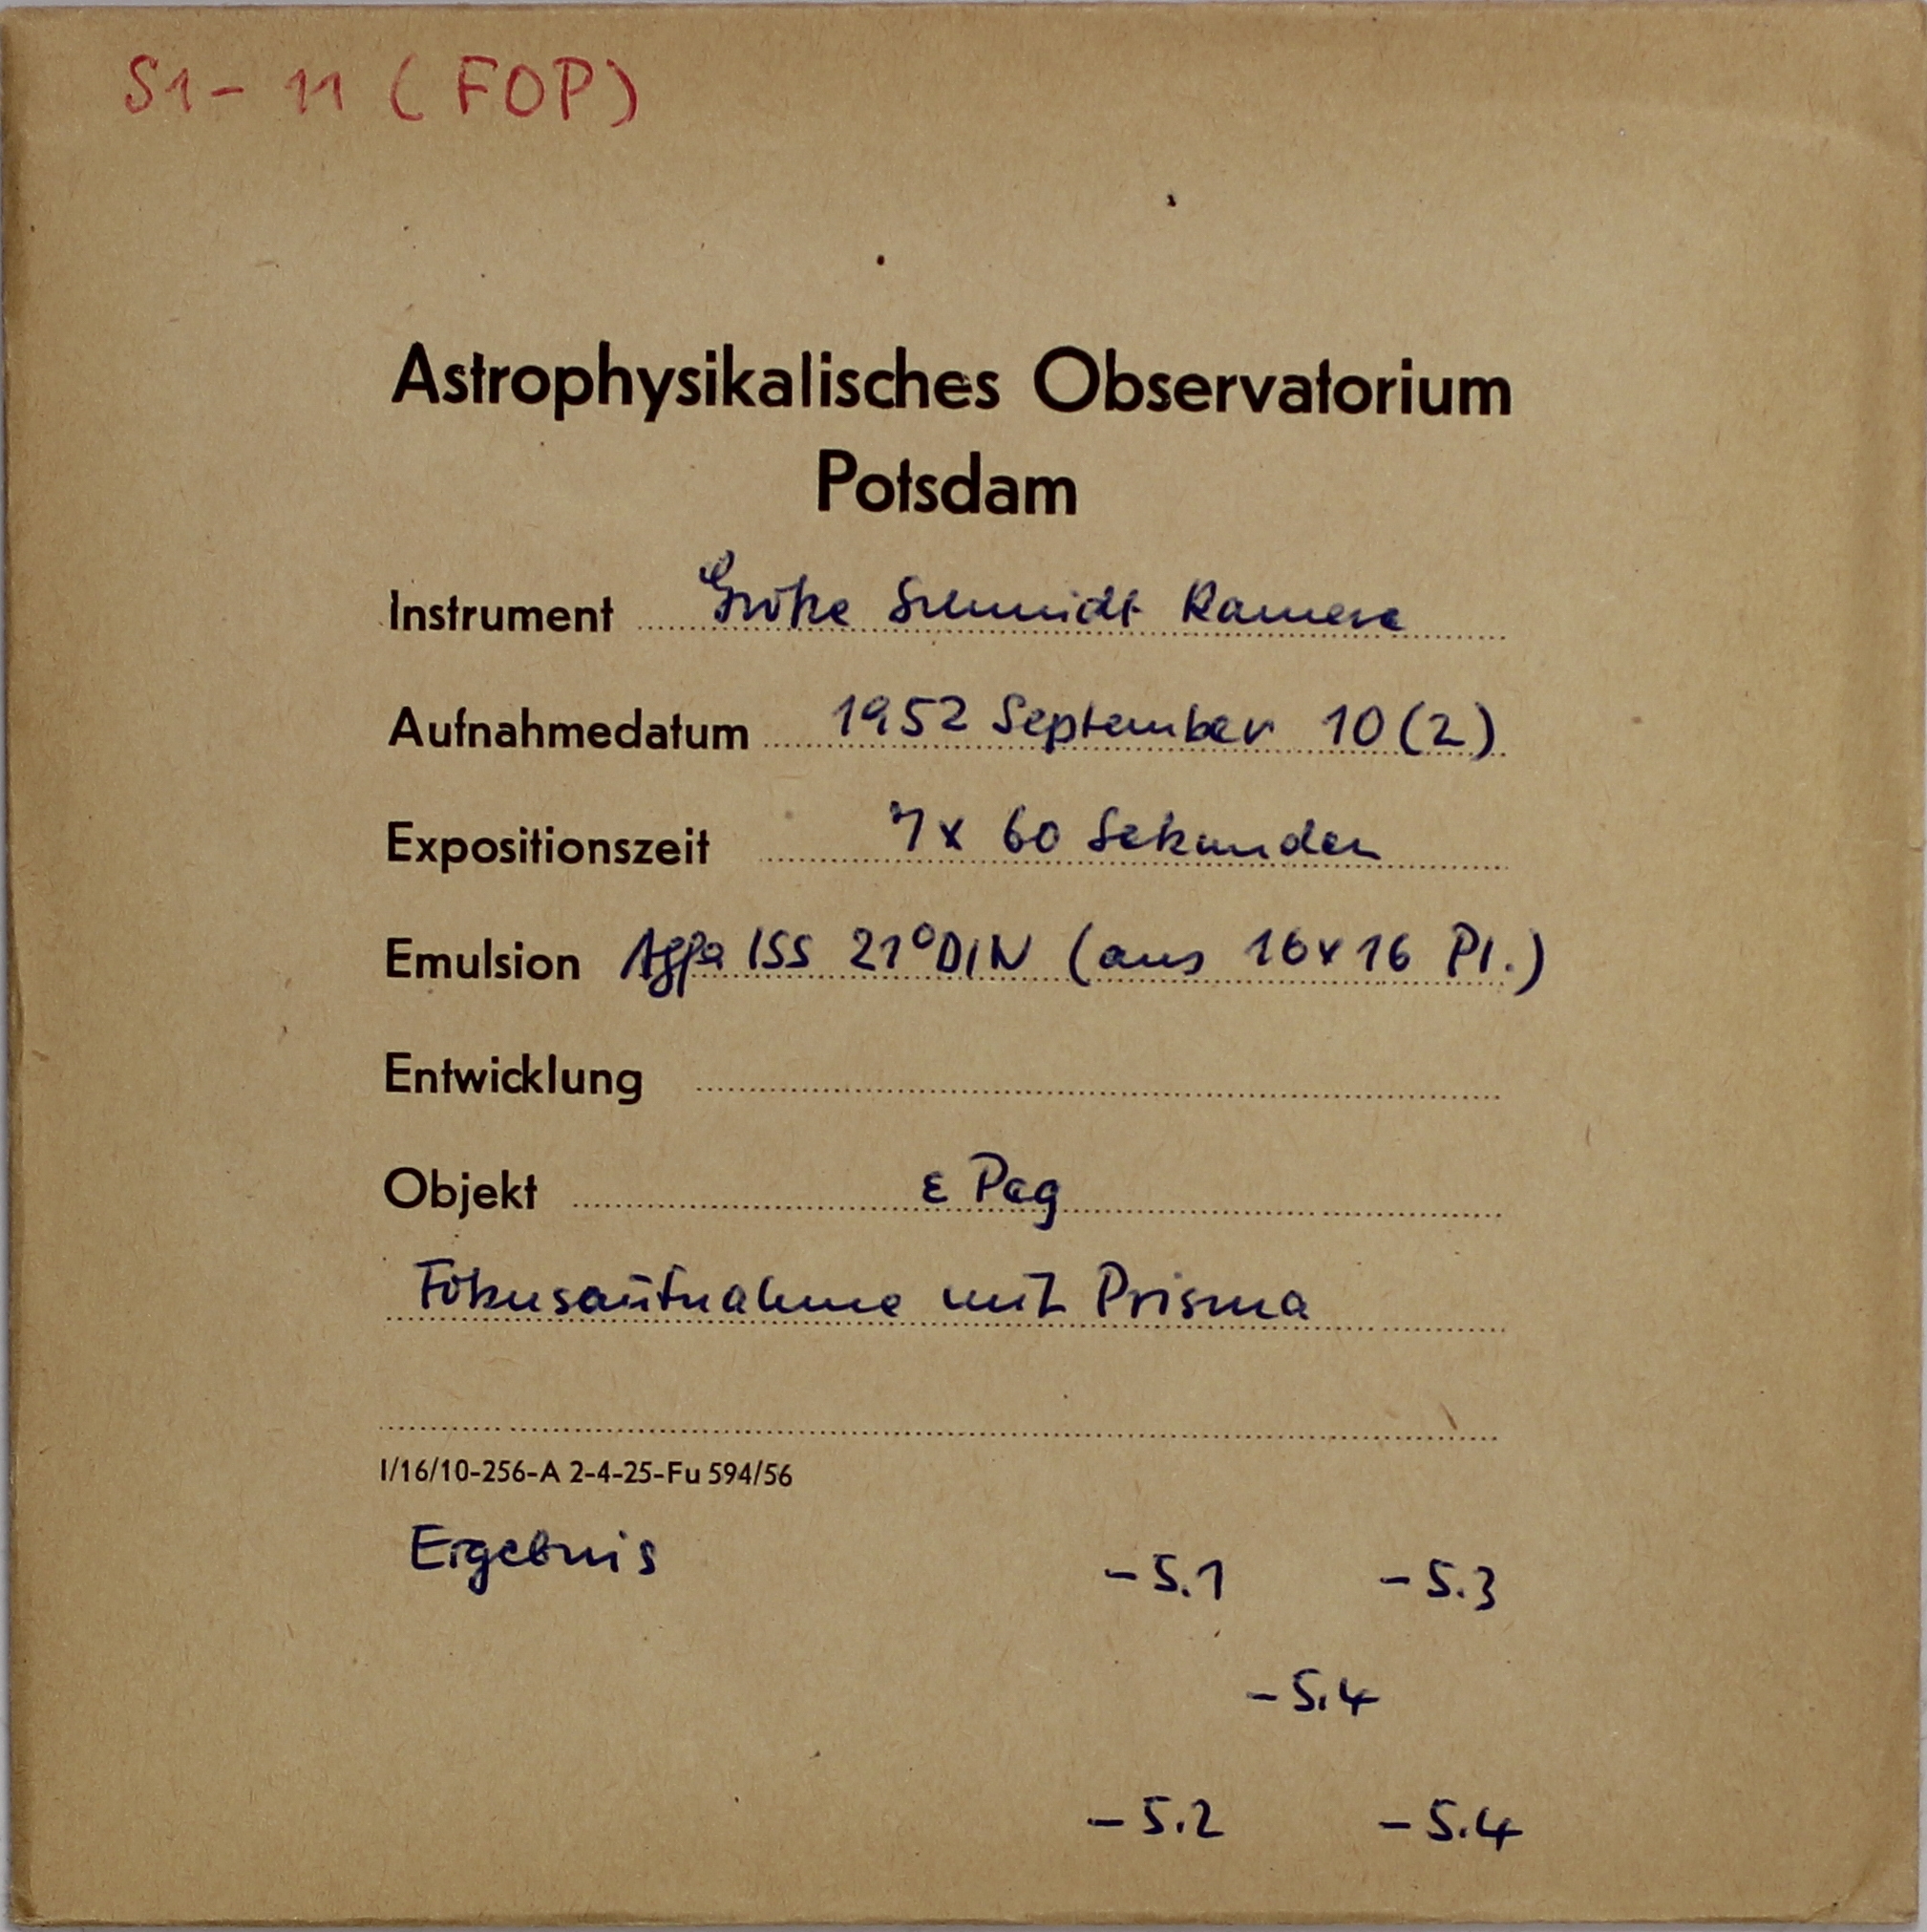 S1- 11 (FOP)
Astrophysikalisches Observatorium
Potsdam
Instrument Große Schmidt Kamera
Aufnahmedatum 1952 September 10 (2)
Expositionszeit 7x 60 Sekunden
Emulsion Agfa ISS 21°DIN (aus 16x16 Pl.)
Entwicklung
Objekt ε Peg
Fokusaufnahme mit Prisma
I/16/10-256-A 2-4-25-Fu 594/56
Ergebnis -5.1 -5.3
-5.4
-5.2 -5.4